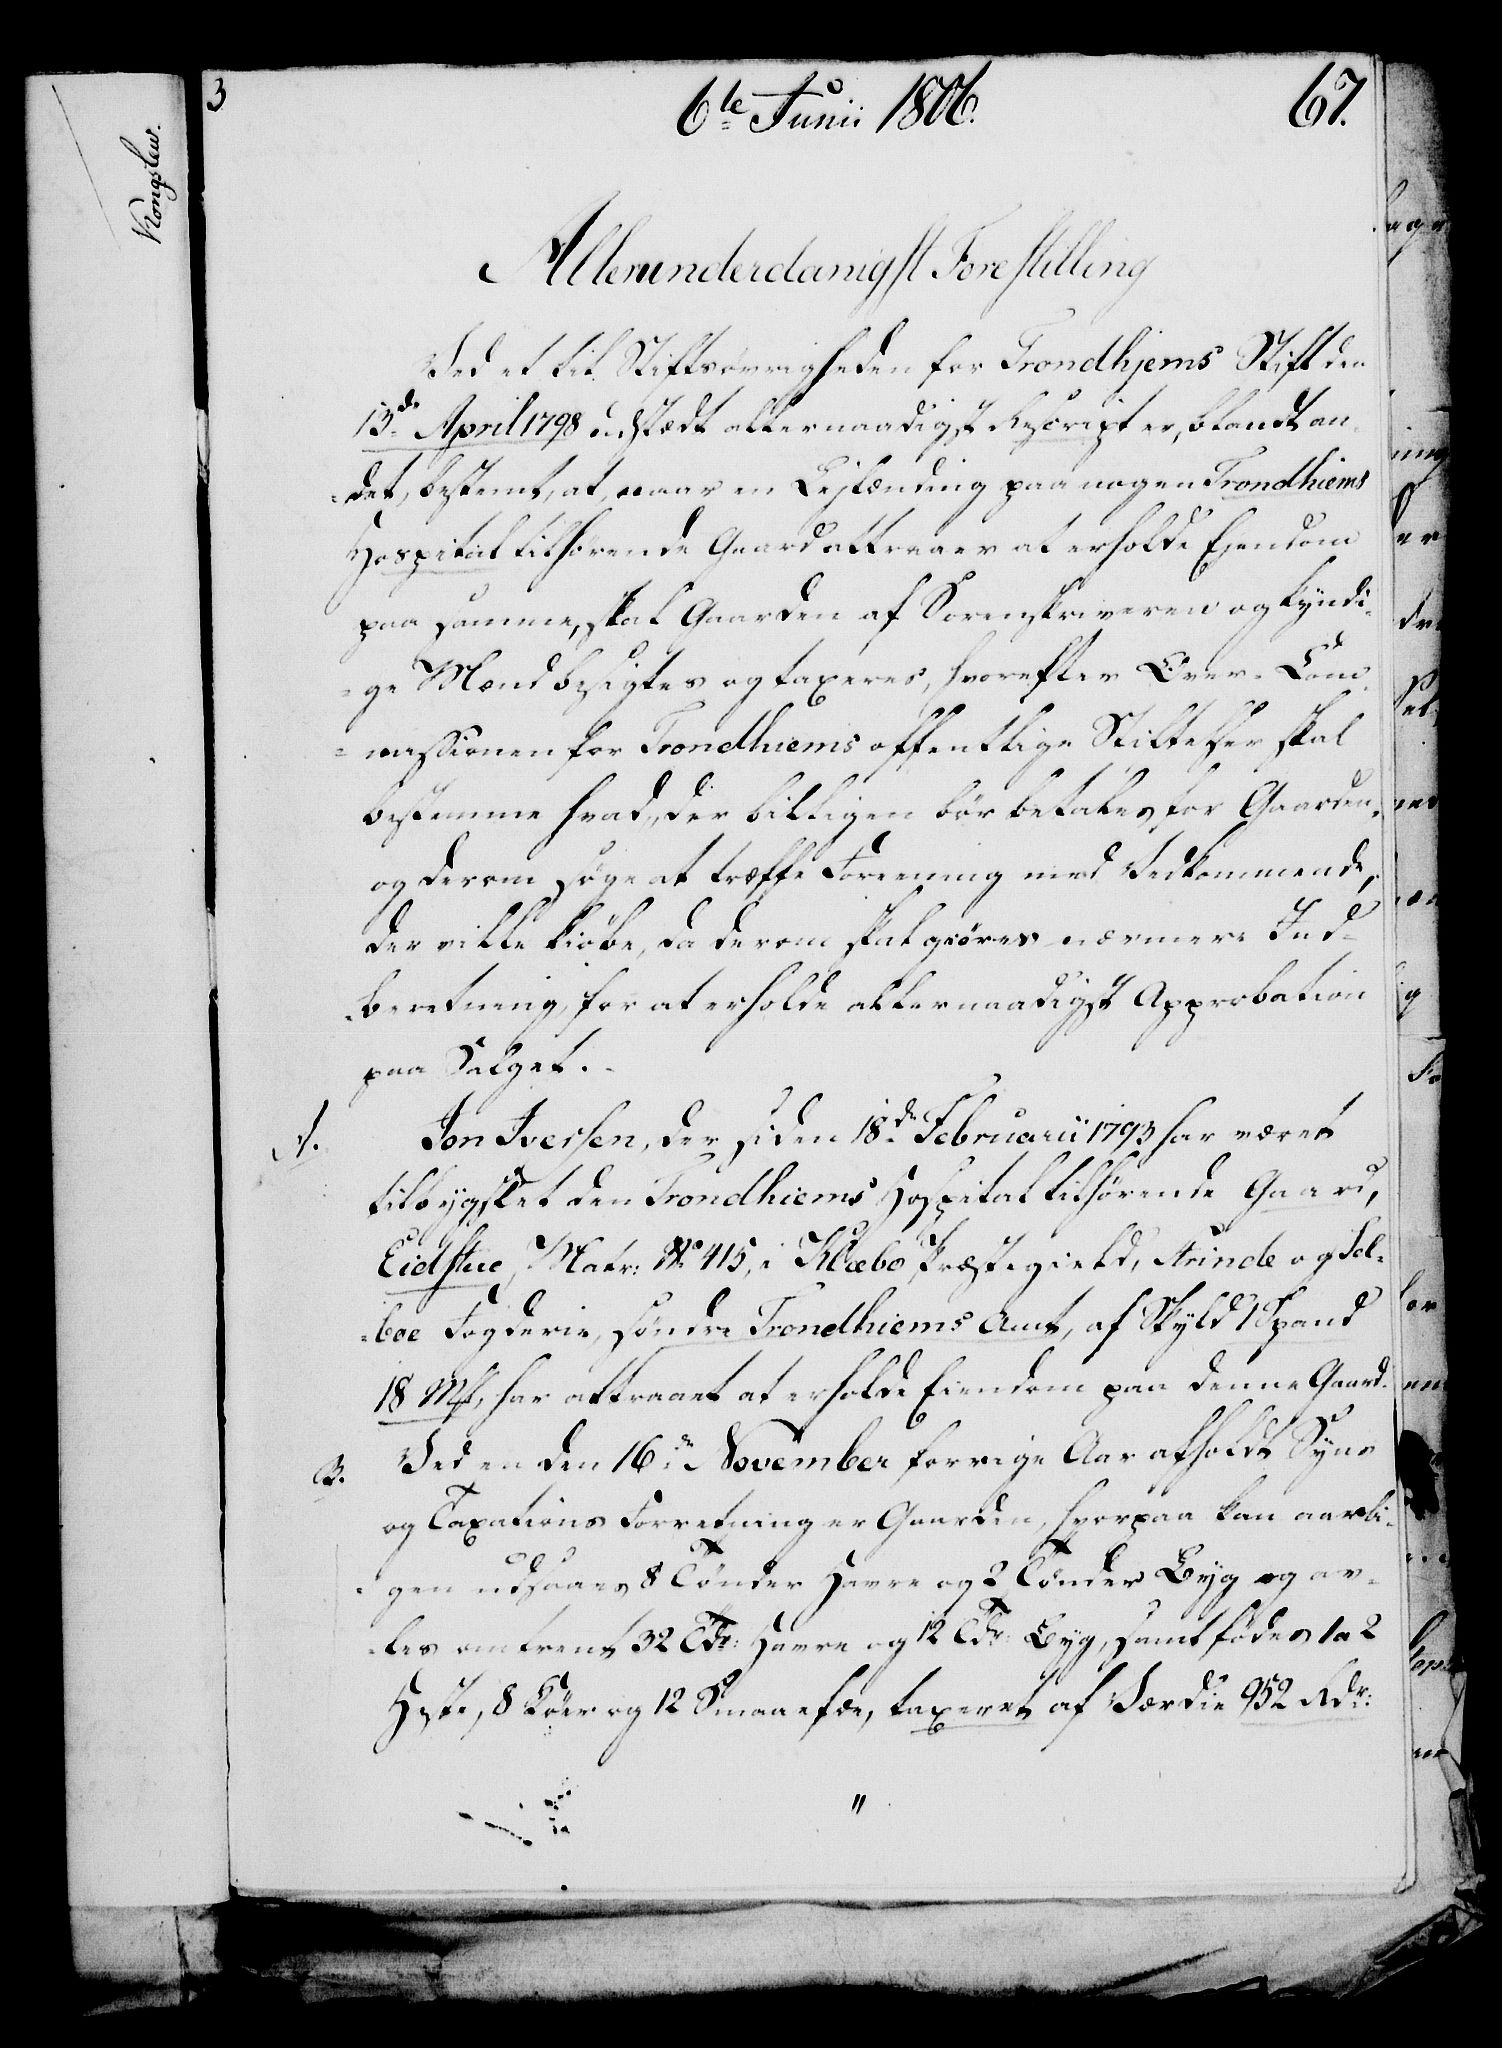 3
6te Junii 1806.
67.
Kongslew.
Allerunderdanigst Forestilling
Ved et til Stiftsøvrigheden for Trondhjems Stift den
13de April 1798 udstædt allernaadigst Rescript er, blandt an-
-det, bestemt, at, naar en Leilænding paa nogen Trondhiems
Hospital tilhørende Gaard attraaer at erholde Eiendom
paa samme, skal Gaarden af Sorenskriveren og kyndi-
-ge Mænd besigtes og taxeres, hvorefter Over-Com-
-missionen for Trondhiems offentlige Stiftelser skal
bestemme hvad, der billigen bør betales for Gaarden,
og derom søge at træffe Foreening med Vedkommende,
der ville kiøbe, da derom skal giøres nærmere Ind-
-beretning, for at erholde allernaadigst Approbation
paa Salget.
A. Jon Iversen, der siden 18de Februarii 1793 har været
tilbygslet den Trondhiems Hospital tilhørende Gaard,
Eidstue, Matr: No 415, i Klæbo Præstegield, Strinde og Sel-
-boe Fogderie, søndre Trondhiems Amt, af Skyld 1 Spand
18 Mk, har attraaet at erholde Eiendom paa denne Gaard.
B. Ved en den 16de November forrige Aar afholdt Syns
og Taxations Forretning er Gaarden, hvorpaa kan aarli-
-gen udsaaes 8 Tønder Havre og 2 Tønder Byg og av-
-les omtrent 32 Tdr: Havre og 12 Tdr: Byg, samt fødes 1 a 2
Heste, 8 Køer og 12 Smaaefæe, taxeret af Værdie 952 Rdr:
"